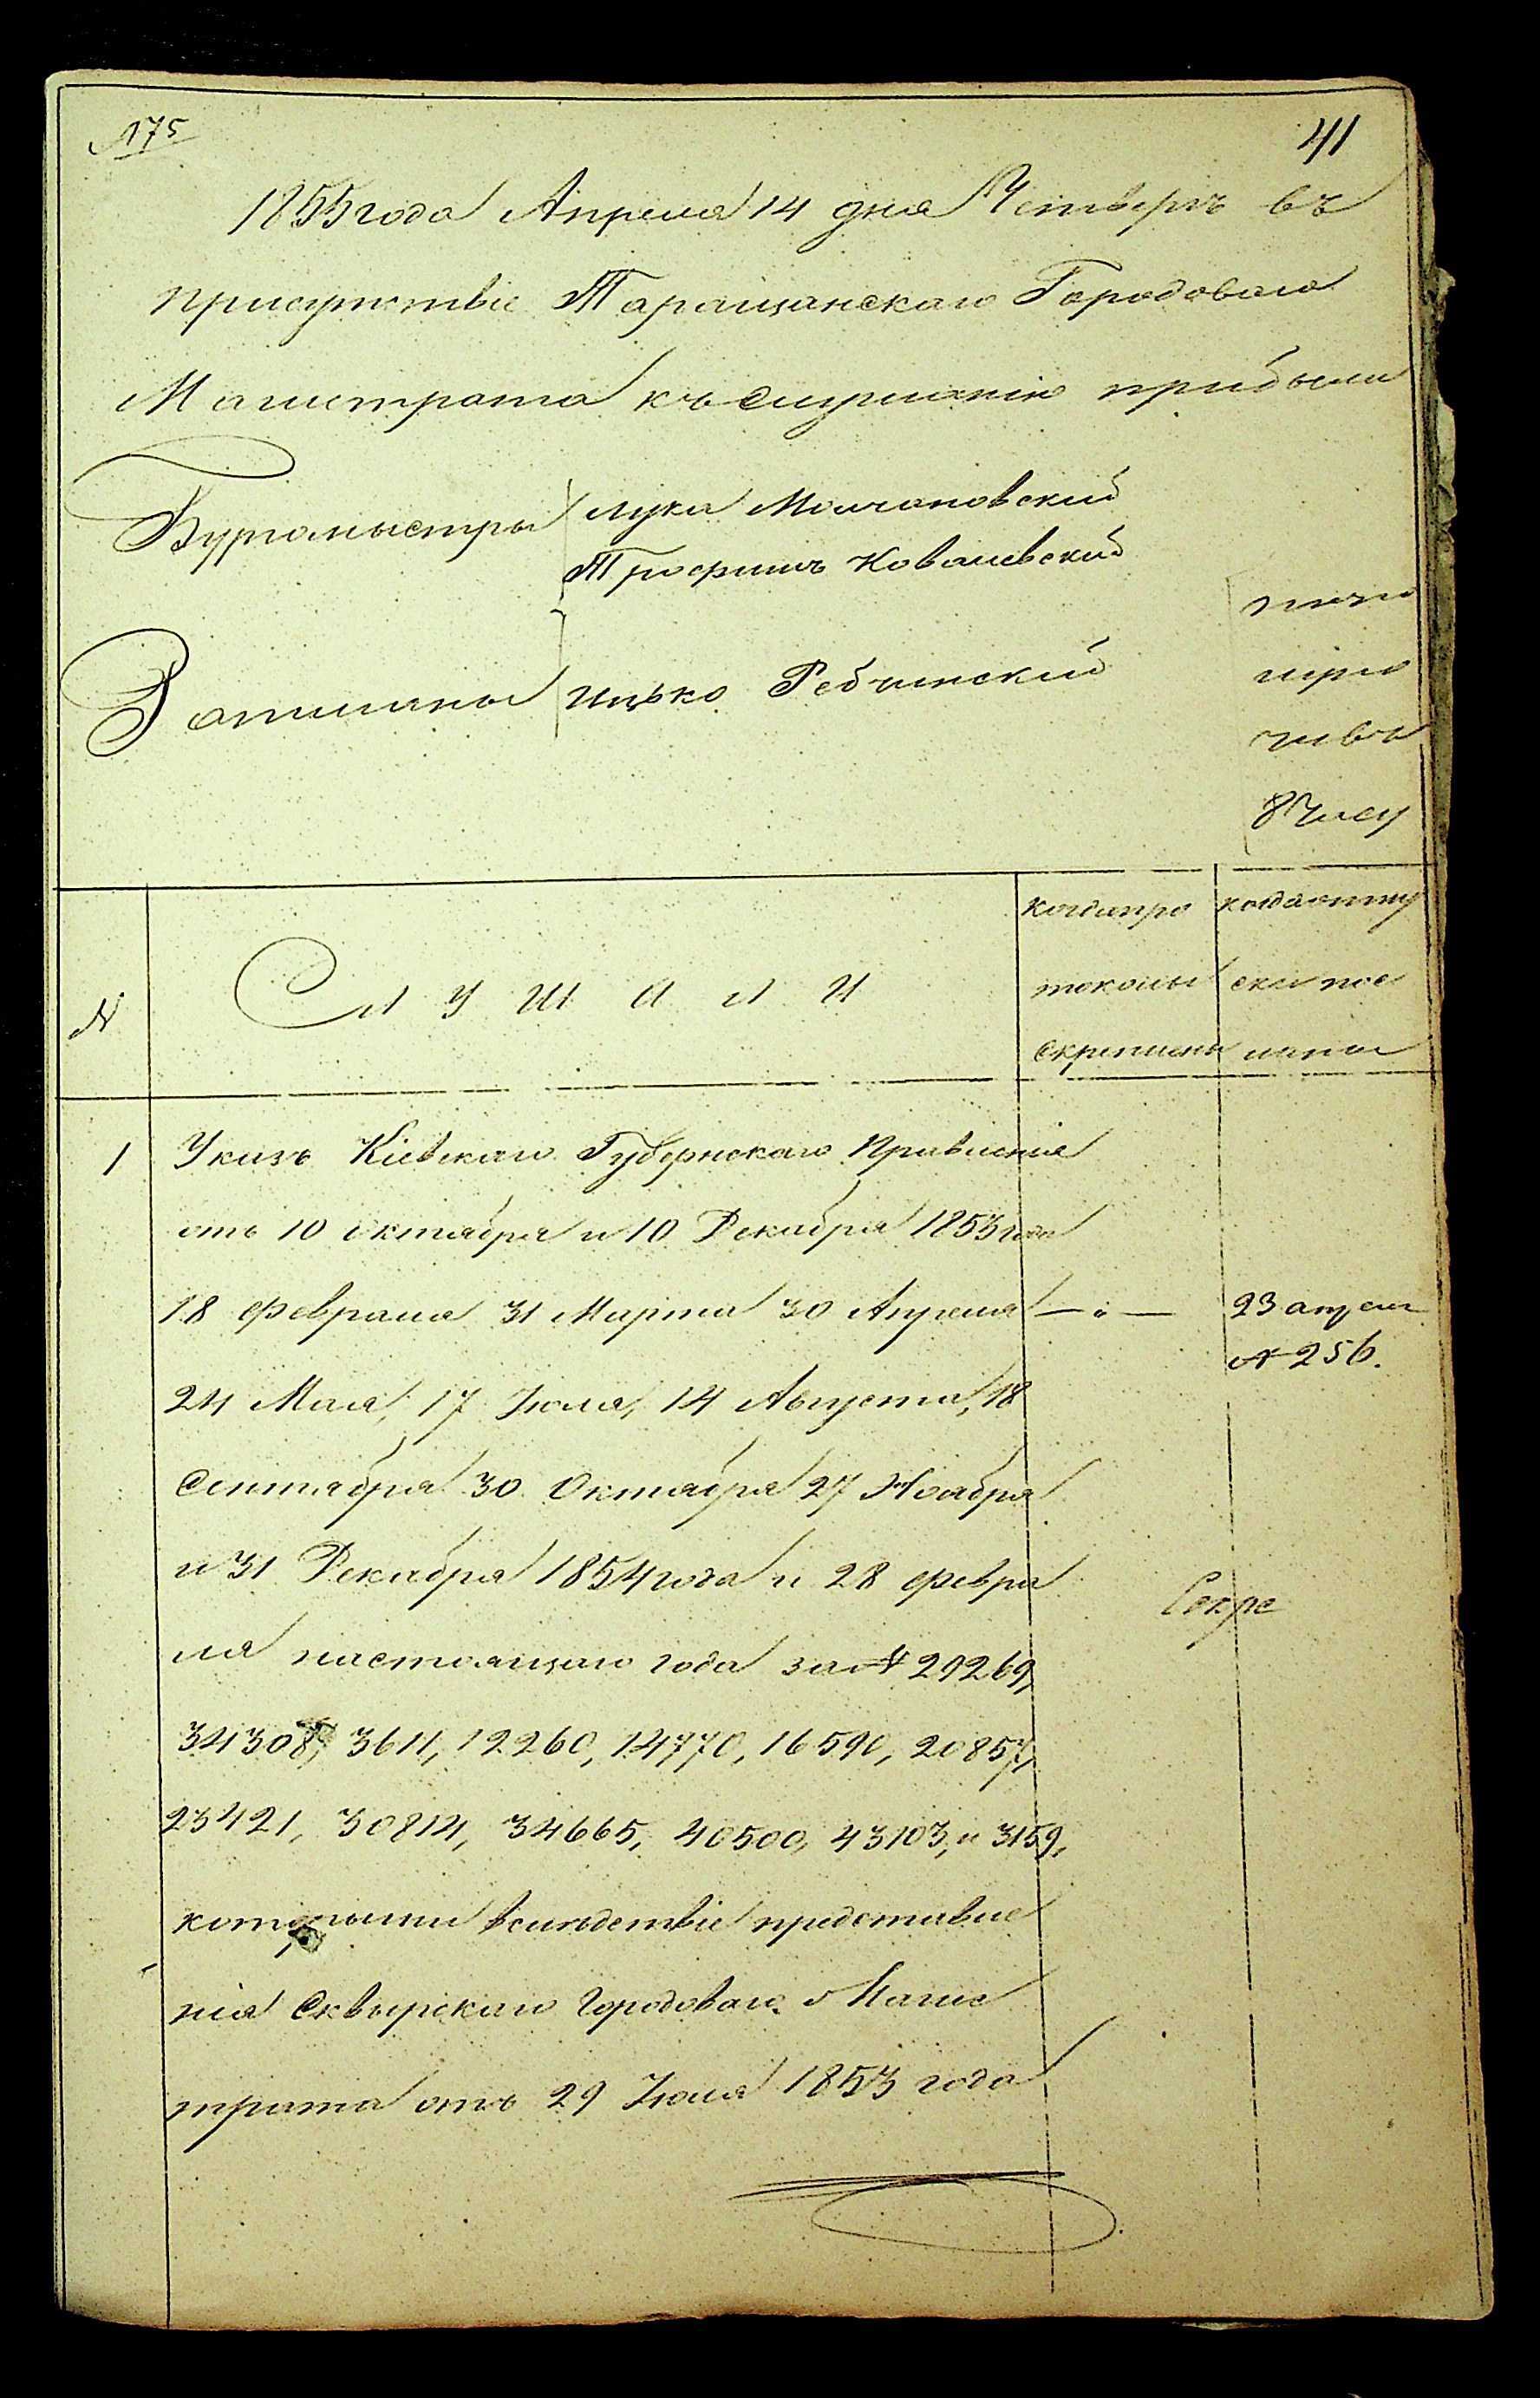 №175
41
1855 года Апреля 14 дня Четвергъ въ
присутствіе Таращанскаго Городоваго
Магистрата къ слушанію прибыли
Бургомыстры лука Молчановскій
Трофимъ Ковалевскій
Ратманы Ицько Ребчинскій
8 Часу
№
Слушали
когда про
токолы
скреплены
когда отпу
ски пос
ланы
1 Указъ Кіевскаго Губернскаго Правленія
отъ 10 октября и 10 Декабря 1853 года
18 февраля 31 Марта 30 Апреля
24 Мая, 17 Іюля, 14 Августа, 18
Сентября 30 Октября 27 Ноября
и 31 Декабря 1854 года и 28 февра
ля настоящаго года за № 29269,
34308, 3611, 12260, 14770, 16590, 20857,
23421, 30814, 34665, 40500, 43103, и 3159,
которыми вслѣдствіе представле
нія Сквирскаго Городоваго Магис
трата отъ 29 Іюля 1853 года
23 апреля
№ 256.
Секре